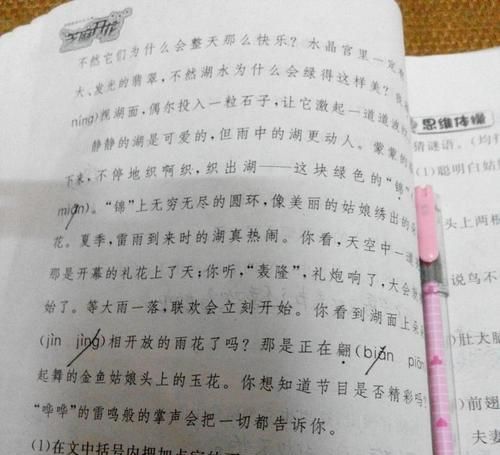 不然它们为什么会整天那么快乐?水晶宫里一定有
大、发光的翡翠,不然湖水为什么会绿得这样美?我
níng)视湖面,偶尔投入一粒石子,让它激起一道道波
静静的湖是可爱的,但雨中的湖更动人。蒙蒙的
下来,不停地织啊织,织出湖——这块绿色的“锦”
mián)。“锦”上无穷无尽的圆环,像美丽的姑娘绣出的
花。夏季,雷雨到来时的湖真热闹。你看,天空中一道
那是开幕的礼花上了天;你听,“轰隆”,礼炮响了,大会
始了。等大雨一落,联欢会立刻开始。你看到湖面上朵
(jìn jìng)相开放的雨花了吗?那是正在翩(biān piān
起舞的金鱼姑娘头上的玉花。你想知道节目是否精彩吗?
“哗哗”的雷鸣般的掌声会把一切都告诉你。
(1)在文中括号内把加点字的
思维体操
猜谜语。(均打
(1)聪明白姑
头上两
说鸟不
)肚大脑
)前翅
夫妻